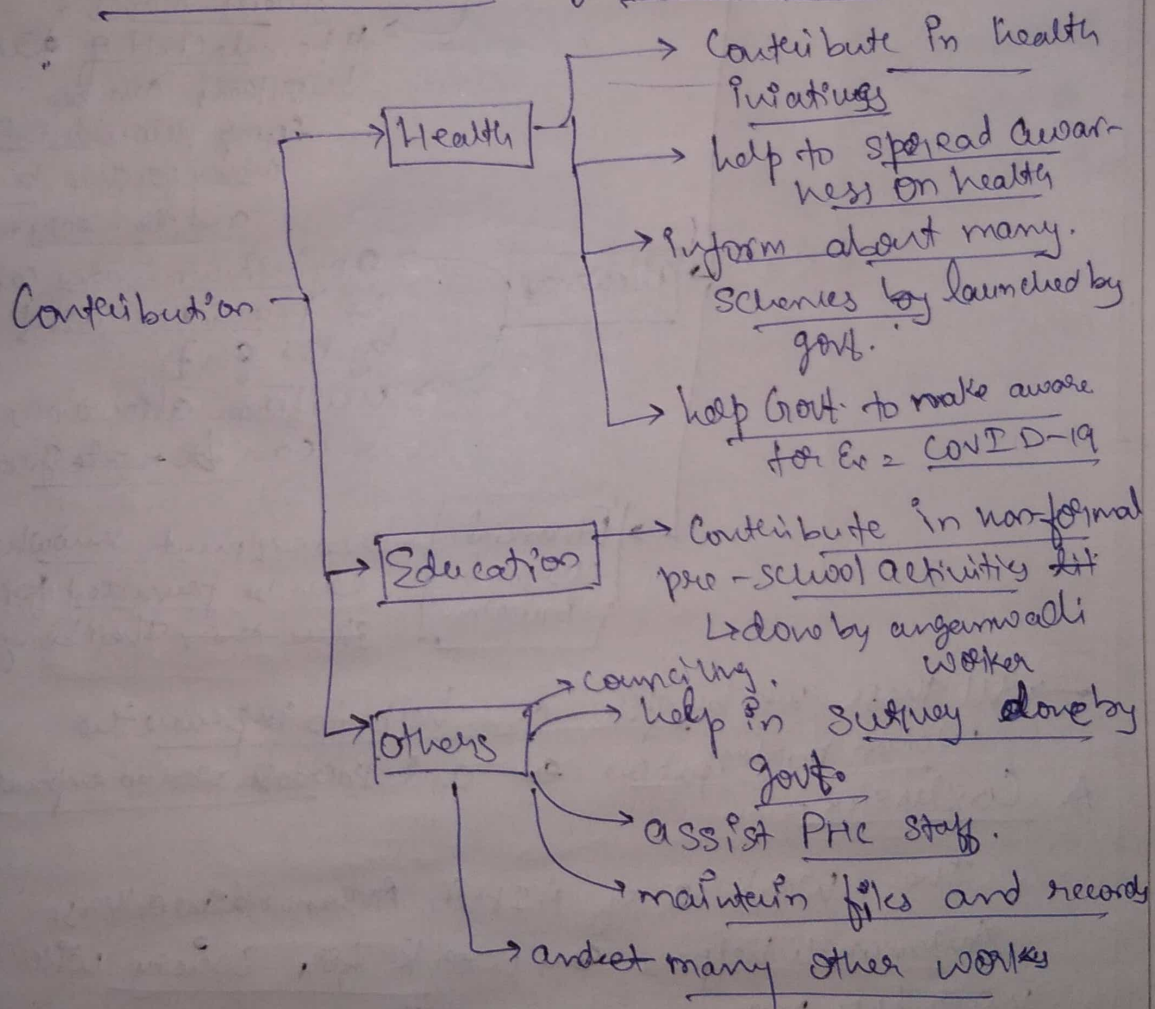 Contribution
Health
Contribute in health
iniatings
help to spread awar-
ness on health
inform about many.
schemes by launched by
govt.
help Govt. to make aware
for Ex = COVID-19
Education
Contribute in non-formal
pre-school activities
↳ done by anganwadi
worker
others
counciling.
help in survey done by
govt.
assist PHC staff.
maintain files and records
many other works